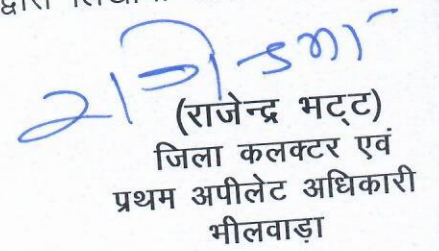 द्वारा
(राजेन्द्र भट्ट)
जिला कलक्टर एवं
प्रथम अपीलेट अधिकारी
भीलवाड़ा